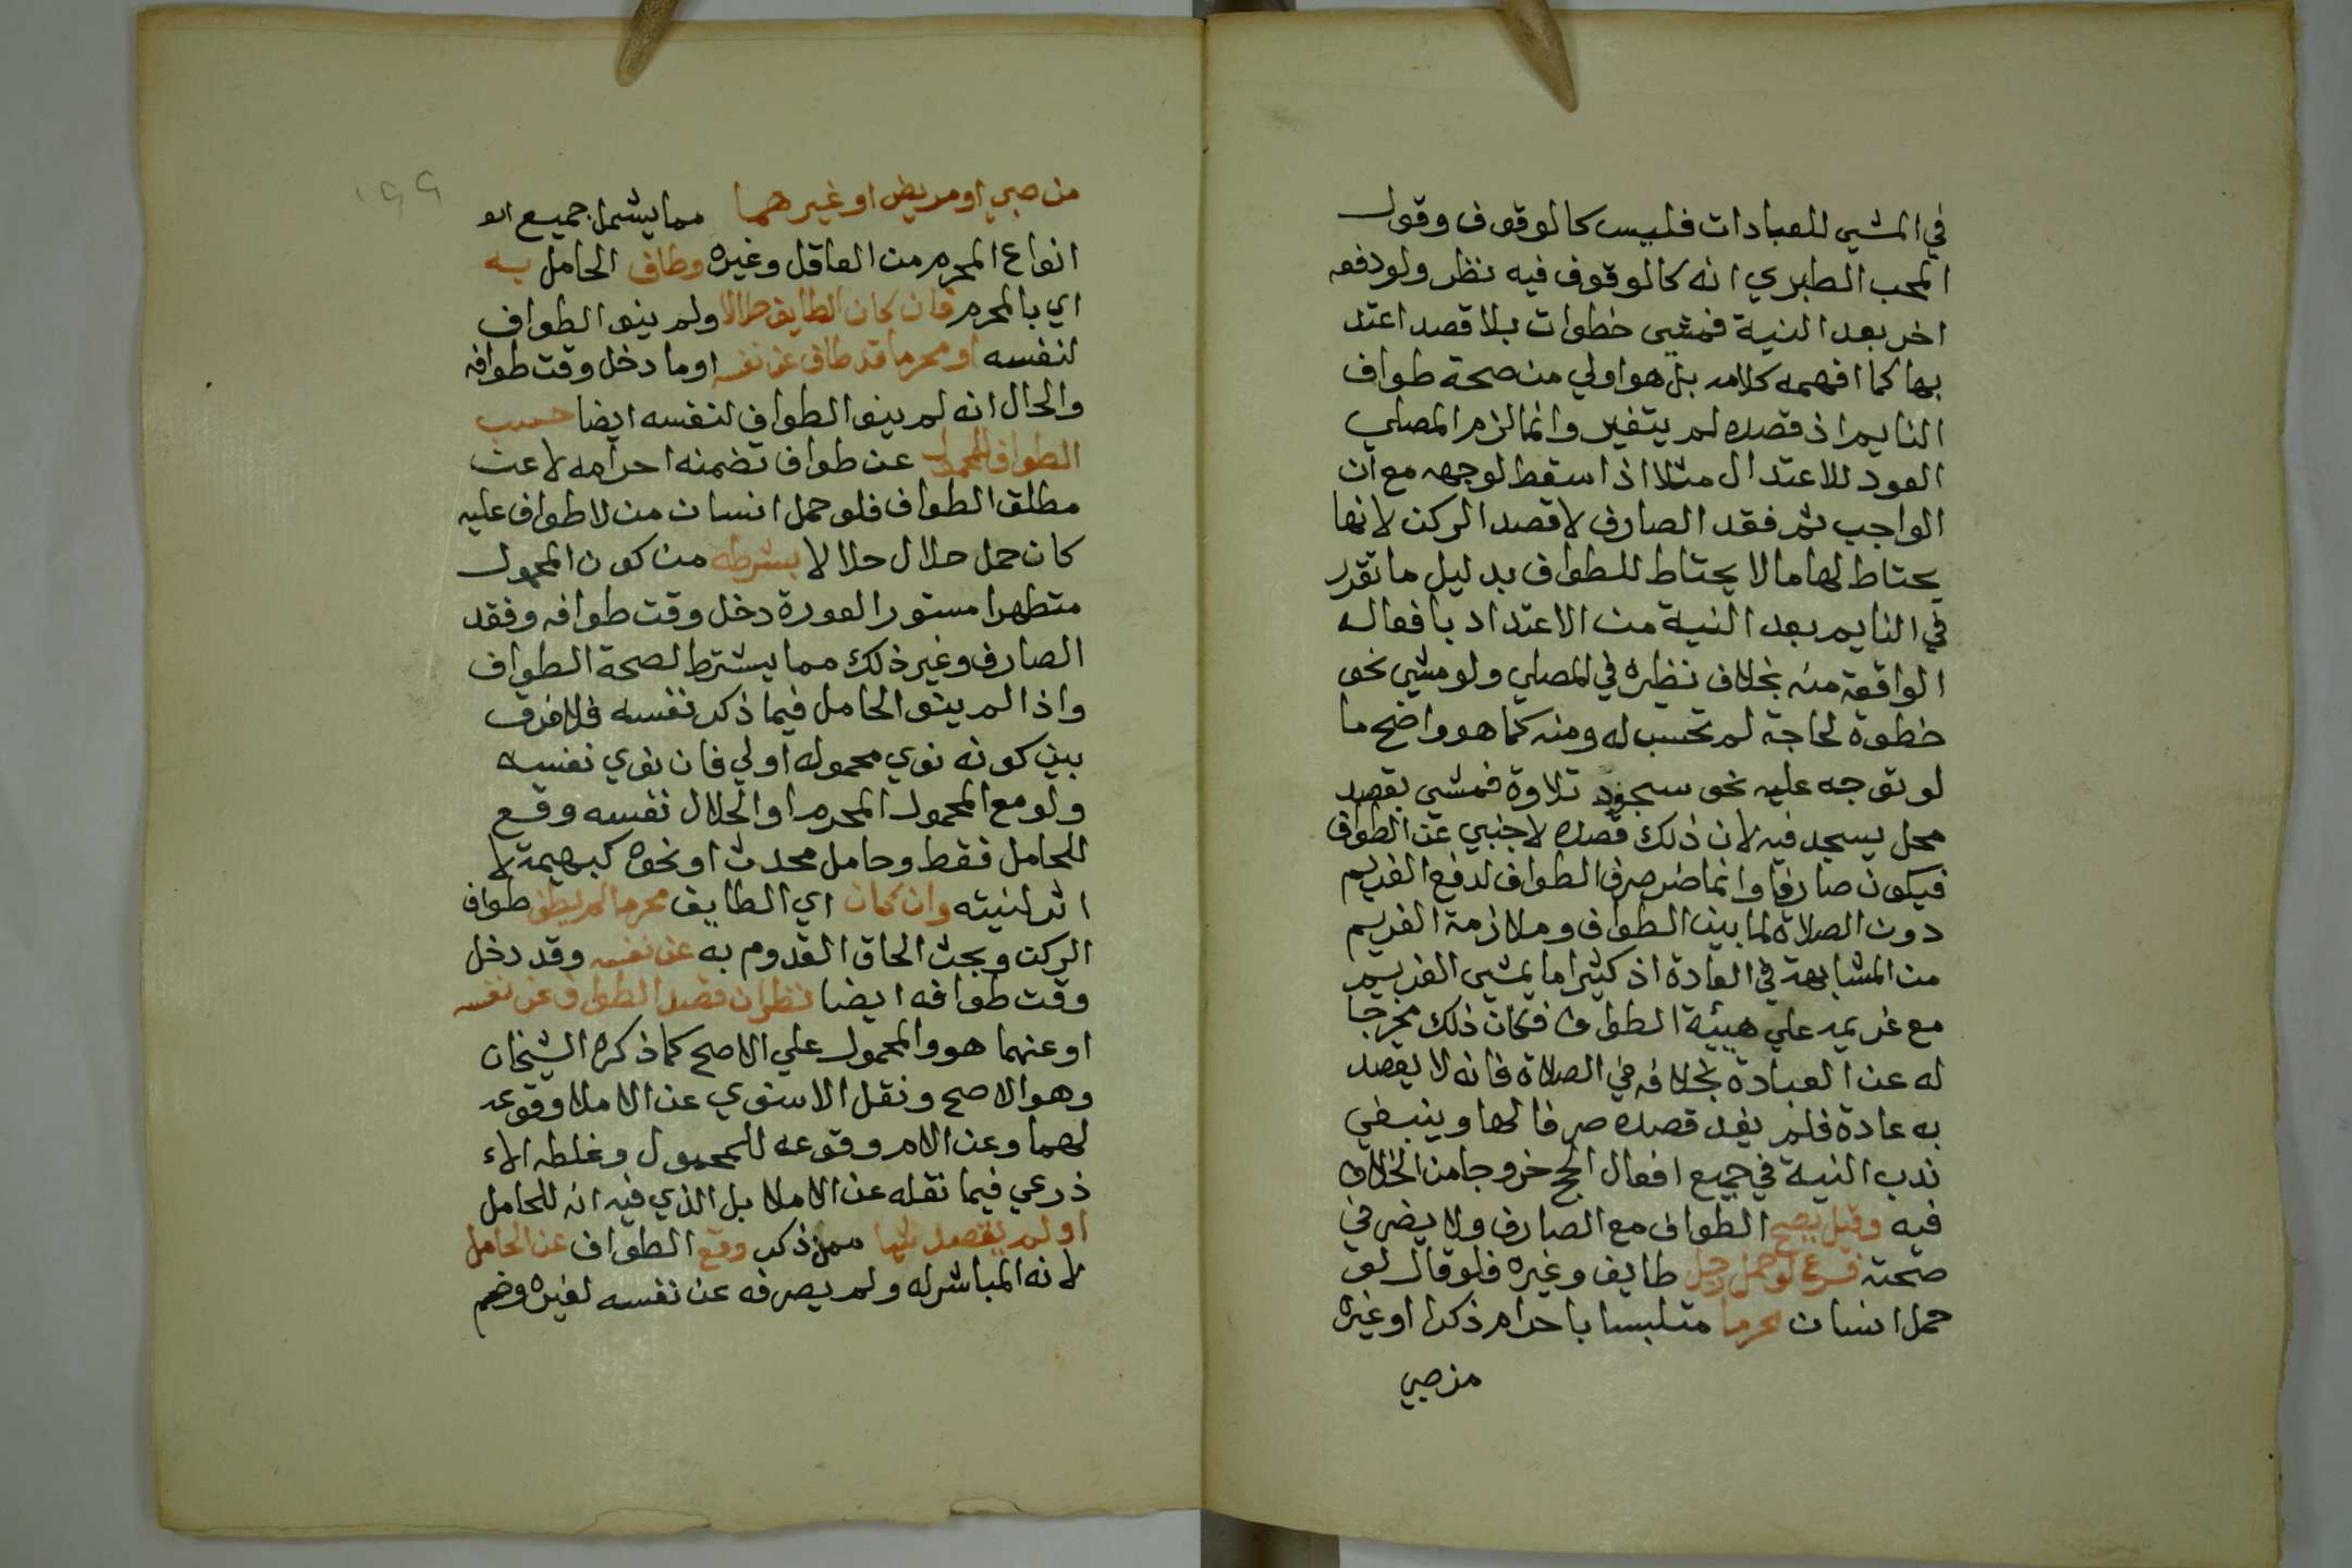 في المشي للعبادات فليس كالوقوف وقول
المحب الطبري انه كالوقوف فيه نظر ولو دفعه
اخر بعد النية فمشي خطوات بلا قصد اعتد
بها كما افهمه كلامه بل هو اولي من صحة طواف
النايم اذ قصده لم يتغير وانما لزم المصلي
العود للاعتدال مثلا اذا سقط لوجهه مع ان
الواجب ثم فقد الصارف لا قصد الركن لانها
يحتاط لها ما لا يحتاط للطواف بدليل ما تقرر
في النايم بعد النية من الاعتداد بافعاله
الواقعة منه بخلاف نظيره في المصلي ولو مشي نحو
خطوة لحاجة لم تحسب له ومنه كما هو واضح ما
لو توجه عليه نحو سجود تلاوة فمشي بقصد
محل يسجد فيه لان ذلك قصده لاجنبي عن الطواف
فيكون صارفا وانما ضر صرف الطواف لدفع الغريم
دون الصلاة لما بين الطواف وملازمة الغريم
من المشابهة في العادة اذ كثيرا ما يمشي الغريم
مع غريمه علي هيئة الطواف فكان ذلك مخرجا
له عن العبادة بخلافه في الصلاة فانه لا يقصد
به عادة فلم يفد قصده صرفا لها وينبغي
ندب النية في جميع افعال الحج خروجا من الخلاف
فيه وقيل يصح الطواف مع الصارف ولا يضر في
صحته فرع لو حمل رجل طايف وغيره فلو قال لو
حمل انسان محرما متلبسا باحرام ذكرا او غيره
من صبي
١٩٩
من صبي او مريض او غيرهما مما يشمل جميع انو
انواع المحرم من العاقل وغيره وطاف الحامل به
اي بالمحرم فان كان الطايف حلالا ولم ينو الطواف
لنفسه او محرما قد طاف عن نفسه او ما دخل وقت طوافه
والحال انه لم ينو الطواف لنفسه ايضا حسب
الطواف للمحمول عن طواف تضمنه احرامه لا عن
مطلق الطواف فلو حمل انسان من لا طواف عليه
كان حمل حلال حلالا بشرطه من كون المحمول
متطهرا مستور العورة دخل وقت طوافه وفقد
الصارف وغير ذلك مما يشترط لصحة الطواف
واذا لم ينو الحامل فيما ذكر نفسه فلا فرق
بين كونه نوي محموله اولي فان نوي نفسه
ولو مع المحمول المحرم او الحلال نفسه وقع
للحامل فقط وحامل محدث او نحوه كبهيمة لا
اثر لنيته وان كان اي الطايف محرما لم يطف طواف
الركن وبحث الحاق القدوم به عن نفسه وقد دخل
وقت طوافه ايضا نظر ان قصد الطواف عن نفسه
او عنهما هو والمحمول علي الاصح كما ذكره الشيخان
وهو الاصح ونقل الاسنوي عن الاملا وقوعه
لهما وعن الام وقوعه للمحمول وغلطه الاء
ذرعي فيما نقله عن الاملا بل الذي فيه انه للحامل
او لم يقصد شيا ممن ذكر وقع الطواف عن الحامل
لانه المباشر له ولم يصرفه عن نفسه لغيره وضم